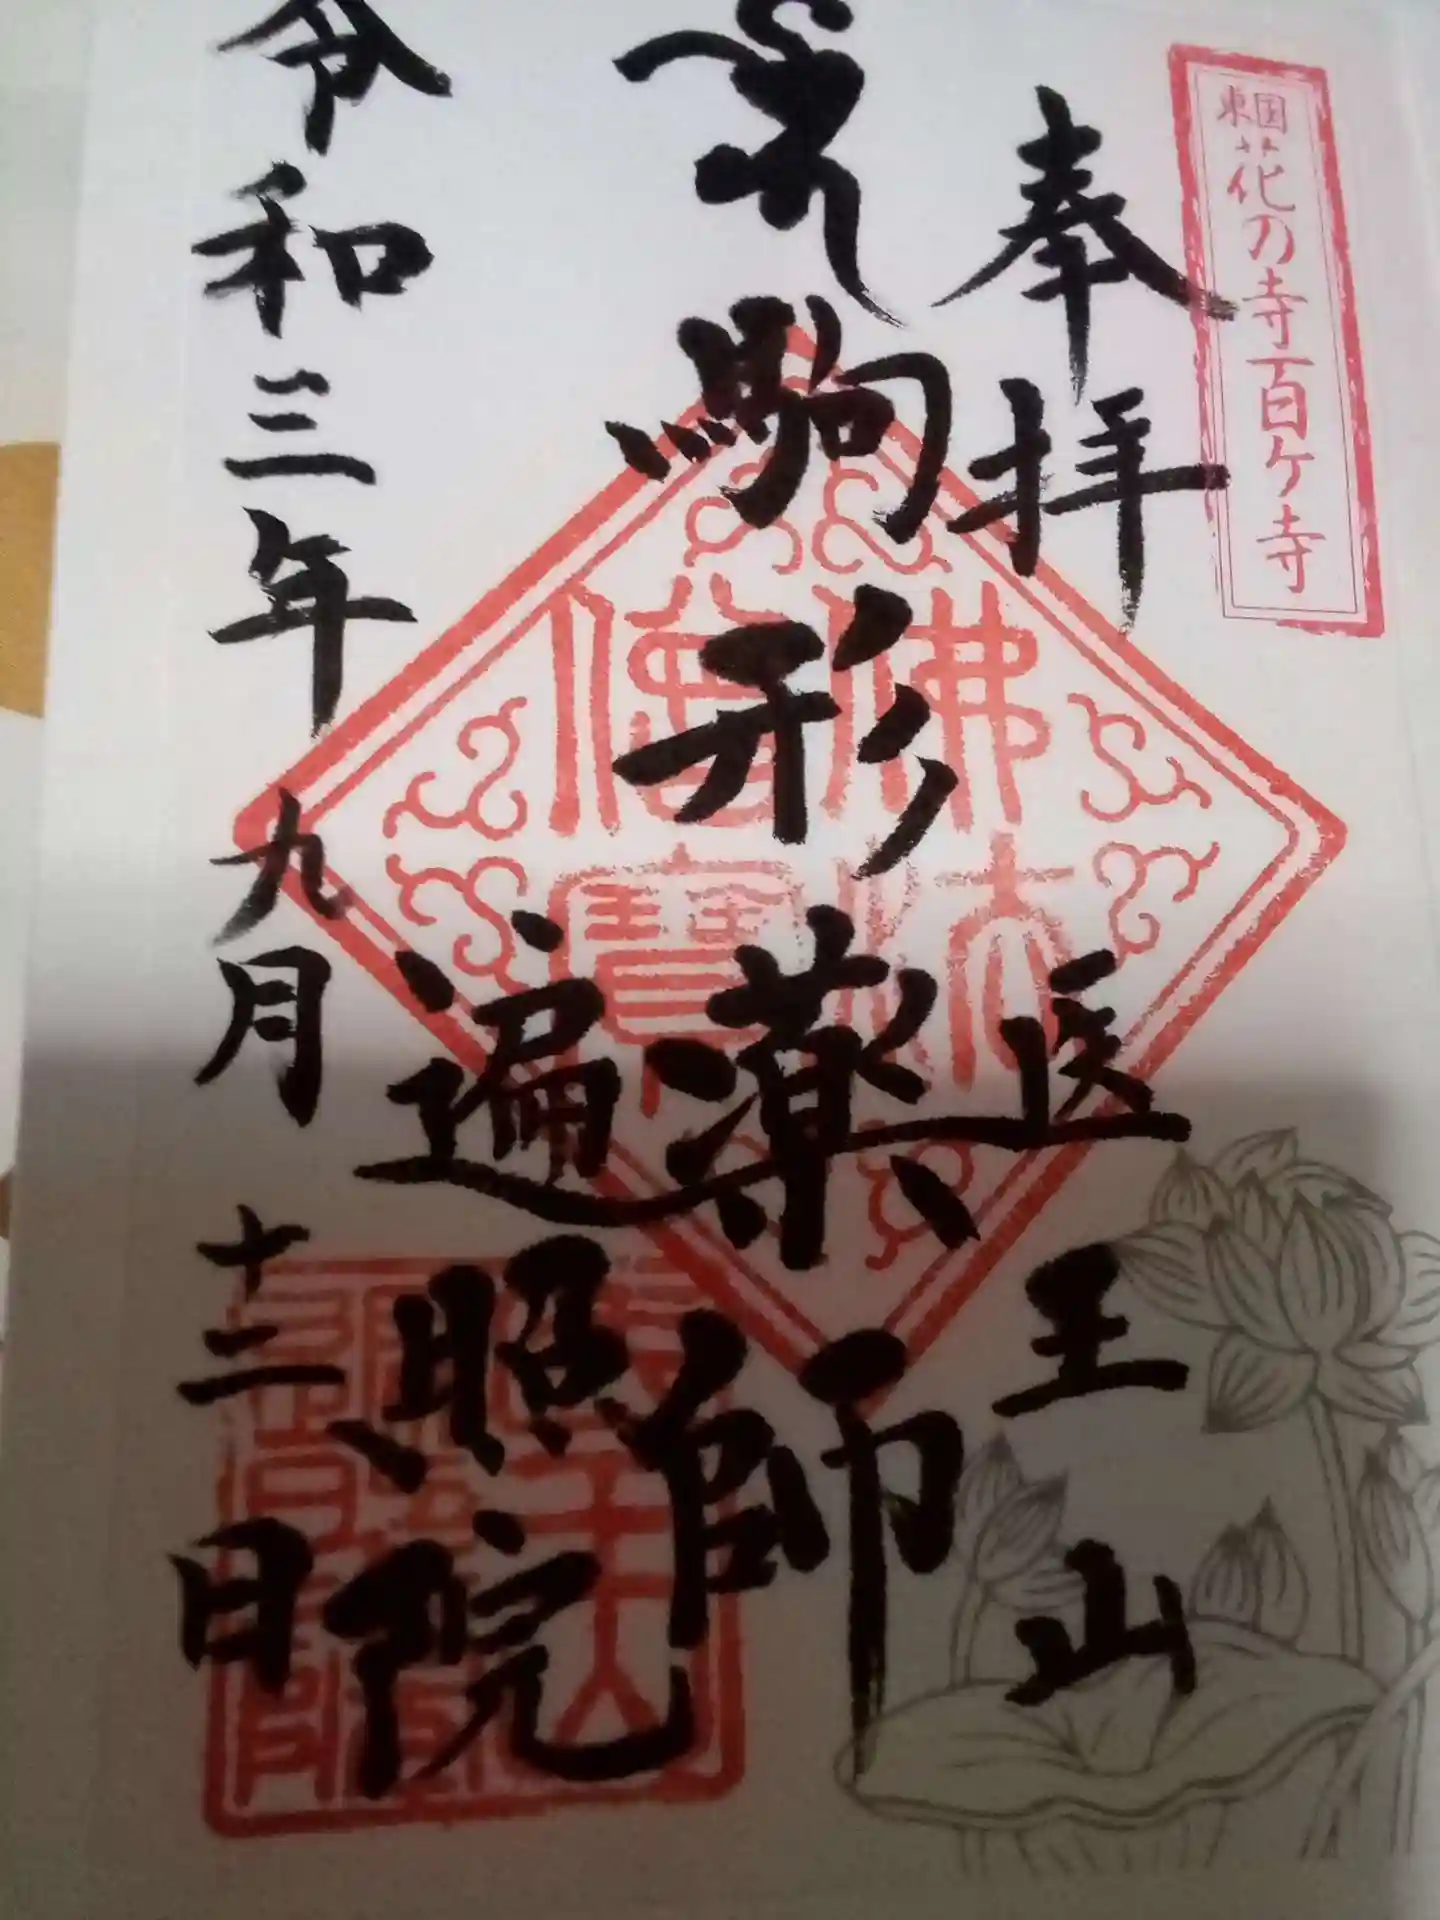 東国花の寺百ケ寺
奉拝
医王山
駒形薬師
遍照院
令和三年九月十二日
佛法僧寶